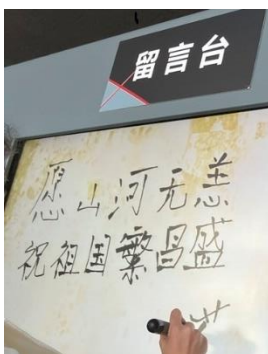 留言台
愿山河无恙
祝祖国繁昌盛